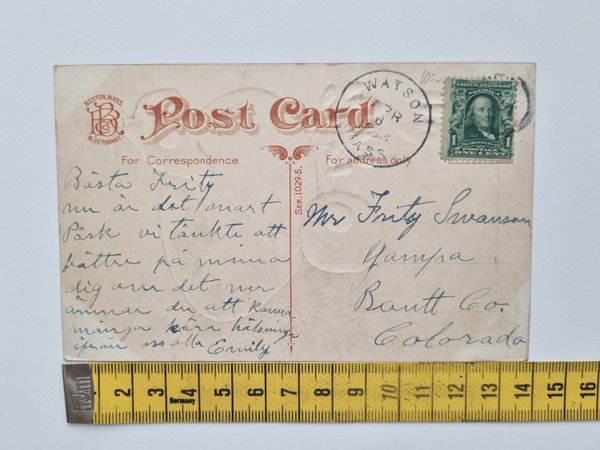 BOSTON, MASS.
B Co
& GERMANY.
Post Card
For Correspondence
For address only
SER. 1029-5.
WATSON
APR
MASS
UNITED STATES OF AMERICA
POSTAGE
ONE CENT
1 1
Bästa Fritz
nu är det snart
Påsk vi tänkte att
bättre påminna
dig om det nu
ämnar du att komma
många kära hälsningar
ifrån oss alla Emily
Mr Fritz Swanson
Yampa
Routt Co.
Colorado
2 3 4 5 6 7 8 9 10 11 12 13 14 15 16
Germany